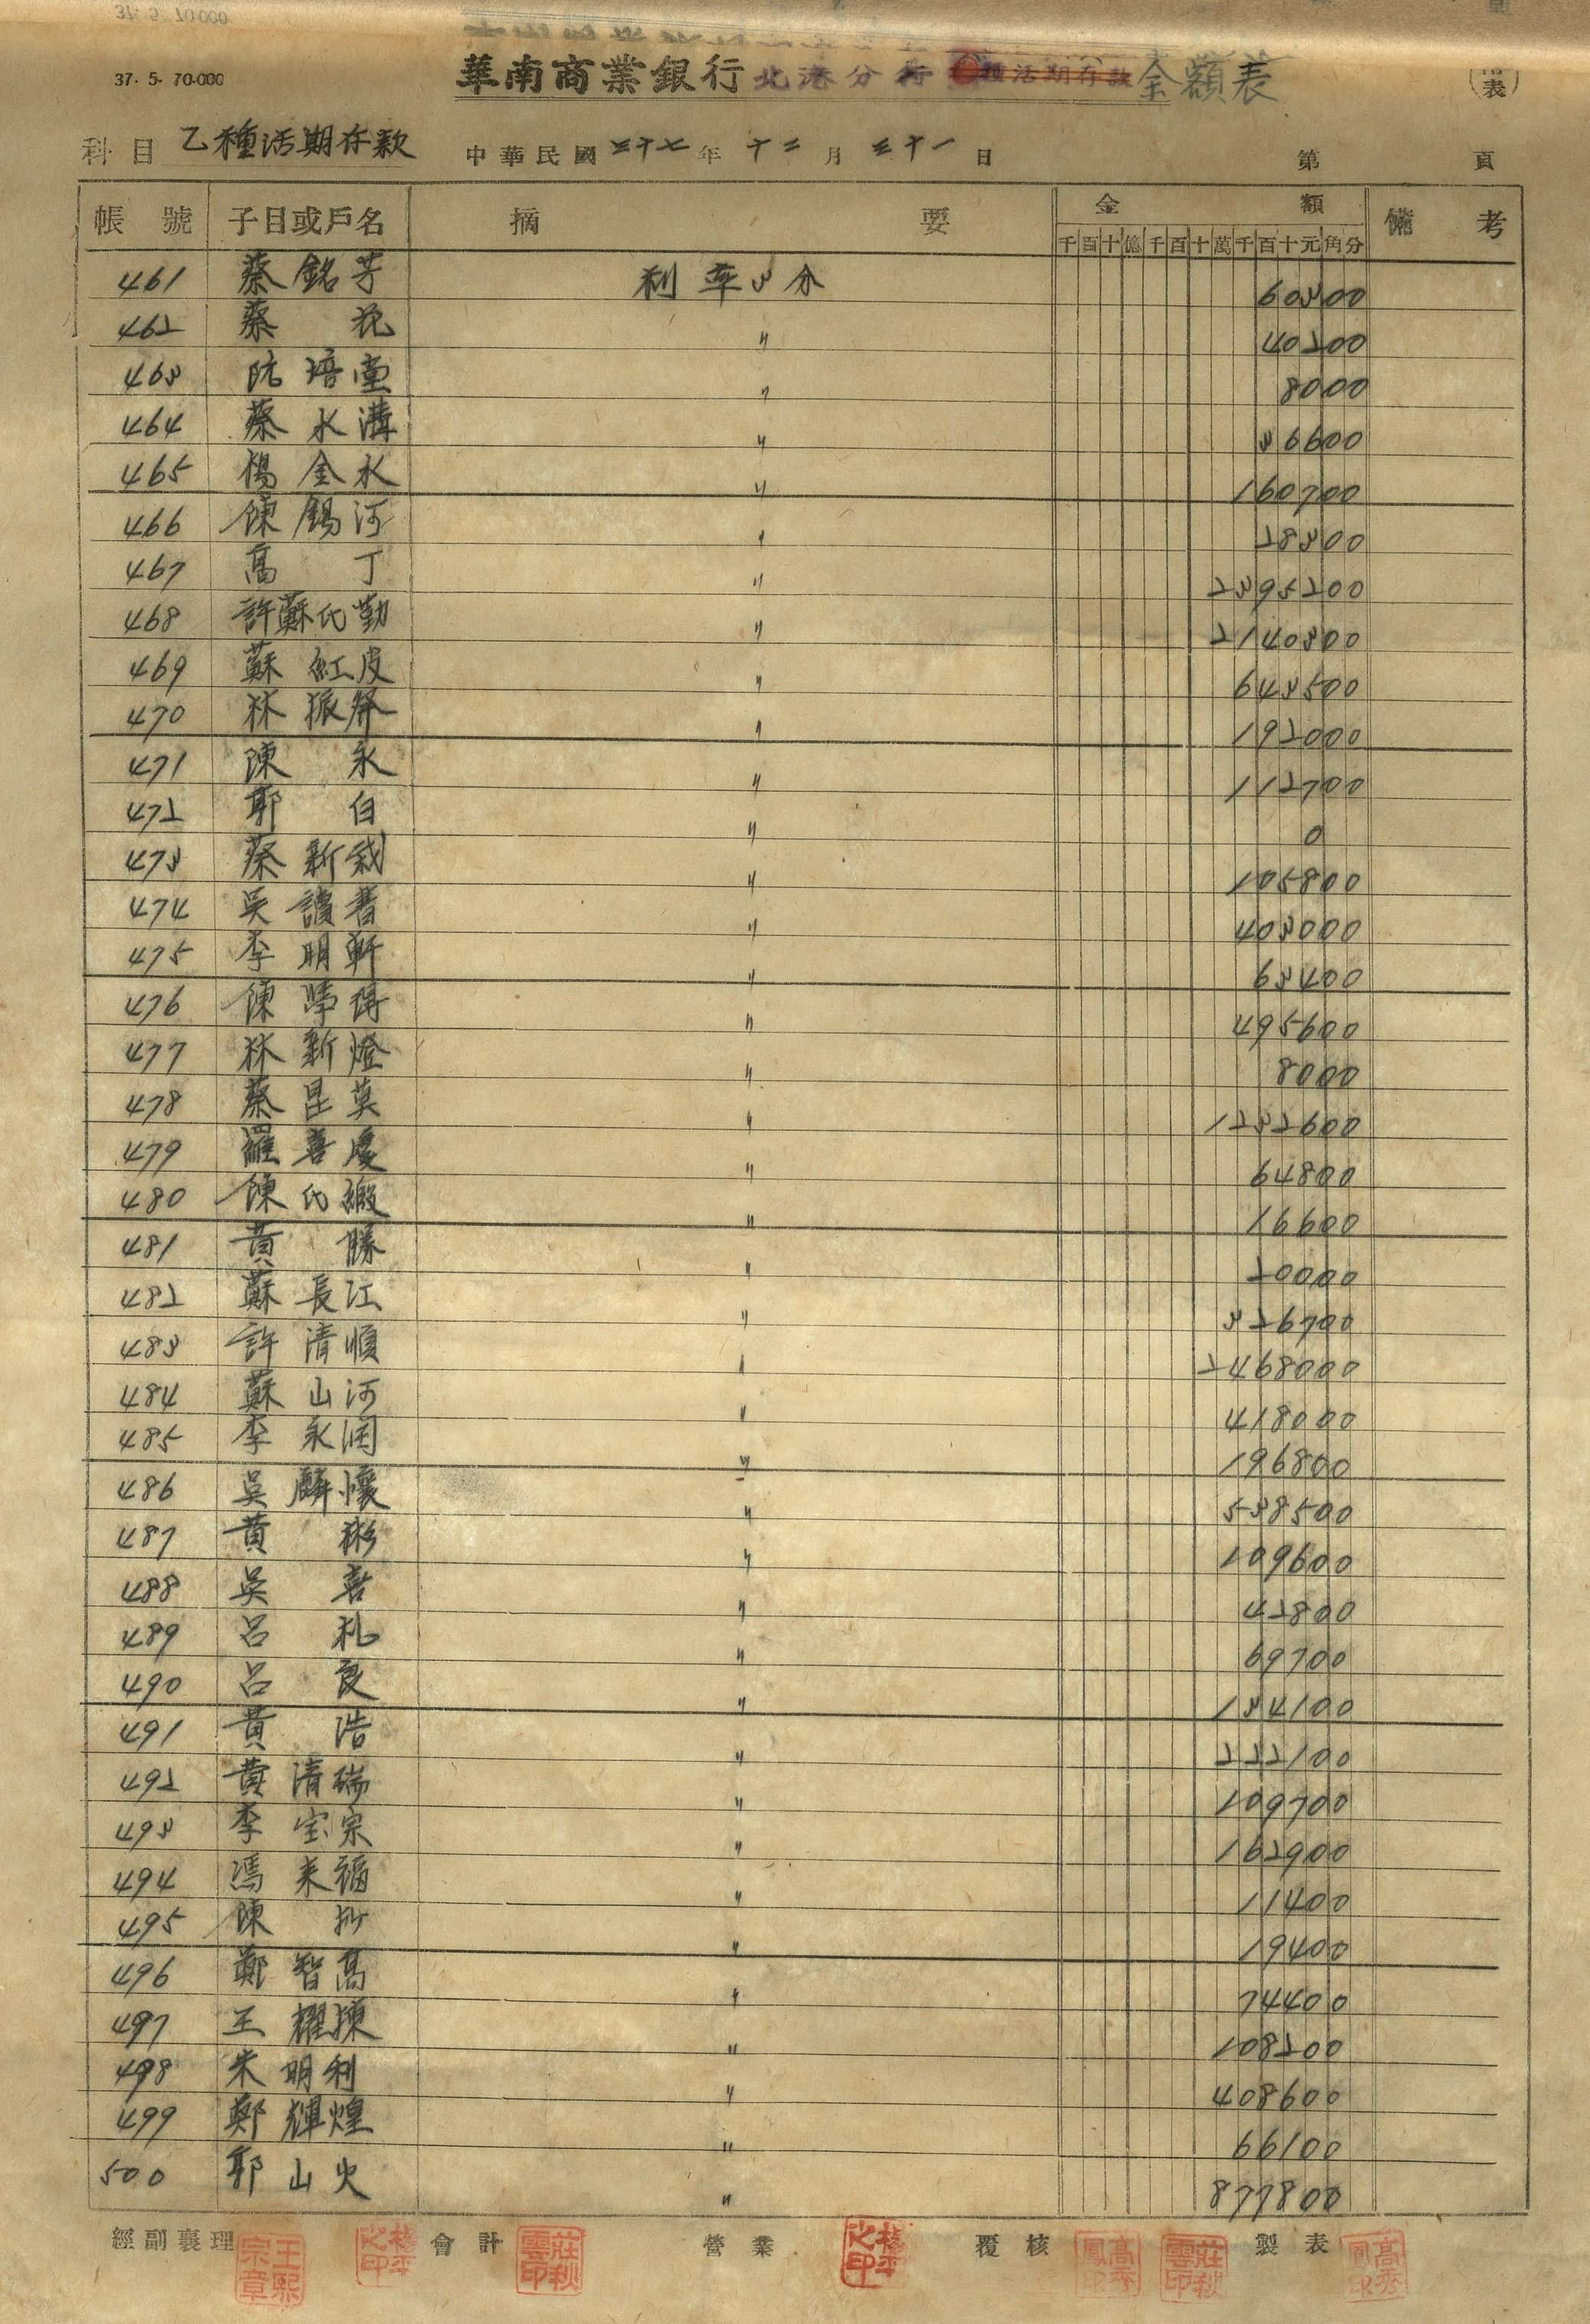 37. 5. 70.000
華南商業銀行 北港分行 種活期存款 金額表
科目 乙種活期存款 中華民國 三十七 年 十二 月 三十一 日 第 頁
帳號 子目或戶名 摘要 金額 備考
千百十億千百十萬千百十元角分
461 蔡銘芳 利率3分 60300
462 蔡 〃 40200
463 阮培堂 〃 8000
464 蔡水溝 〃 36600
465 楊金水 〃 160700
466 陳錫河 〃 28300
467 高丁 〃 2395200
468 許蘇氏勤 〃 2140300
469 蘇紅皮 〃 643500
470 林振 〃 192000
471 陳永 〃 112700
472 郭白 〃 0
473 蔡新裁 〃 105800
474 吳讀書 〃 403000
475 李明軒 〃 63400
476 陳 〃 495600
477 林新燈 〃 8000
478 蔡昆莫 〃 1232600
479 羅喜慶 〃 64800
480 陳氏緞 〃 16600
481 黃勝 〃 20000
482 蘇長江 〃 326700
483 許清順 〃 2468000
484 蘇山河 〃 418000
485 李永 〃 196800
486 吳麟懷 〃 538500
487 黃彬 〃 109600
488 吳喜 〃 42800
489 呂札 〃 69700
490 呂良 〃 134100
491 黃浩 〃 222100
492 黃清瑞 〃 109700
493 李宝宗 〃 162900
494 馮来福 〃 11400
495 陳 〃 19400
496 鄭智高 〃 74400
497 王耀 〃 108200
498 朱明利 〃 408600
499 鄭輝煌 〃 66100
500 郭山火 〃 877800
經副襄理 王熙宗章 會計 莊秋雲印 營業 覆核 莊秋雲印 製表